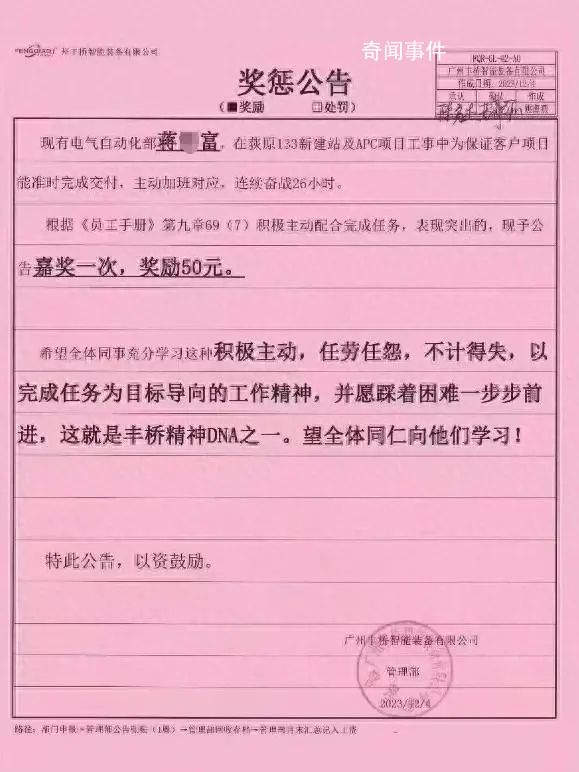 奇闻事件
FENGQIAO 广州丰桥智能装备有限公司
奖惩公告
(■奖励 □处罚)
FQR-GL-02-A0
广州丰桥智能装备有限公司
作成日期 2023/12/4
承认 确认 作成
现有电气自动化部蒋 富,在荻原133新建站及APC项目工事中为保证客户项目
能准时完成交付,主动加班对应,连续奋战26小时。
根据《员工手册》第九章69(7)积极主动配合完成任务,表现突出的,现予公
告嘉奖一次,奖励50元。
希望全体同事充分学习这种积极主动,任劳任怨,不计得失,以
完成任务为目标导向的工作精神,并愿踩着困难一步步前
进,这就是丰桥精神DNA之一。望全体同仁向他们学习!
特此公告,以资鼓励。
广州丰桥智能装备有限公司
管理部
2023/12/4
路径:部门申报→管理部公告张贴(1周)→管理部回收存档→管理部月末汇总记入工资